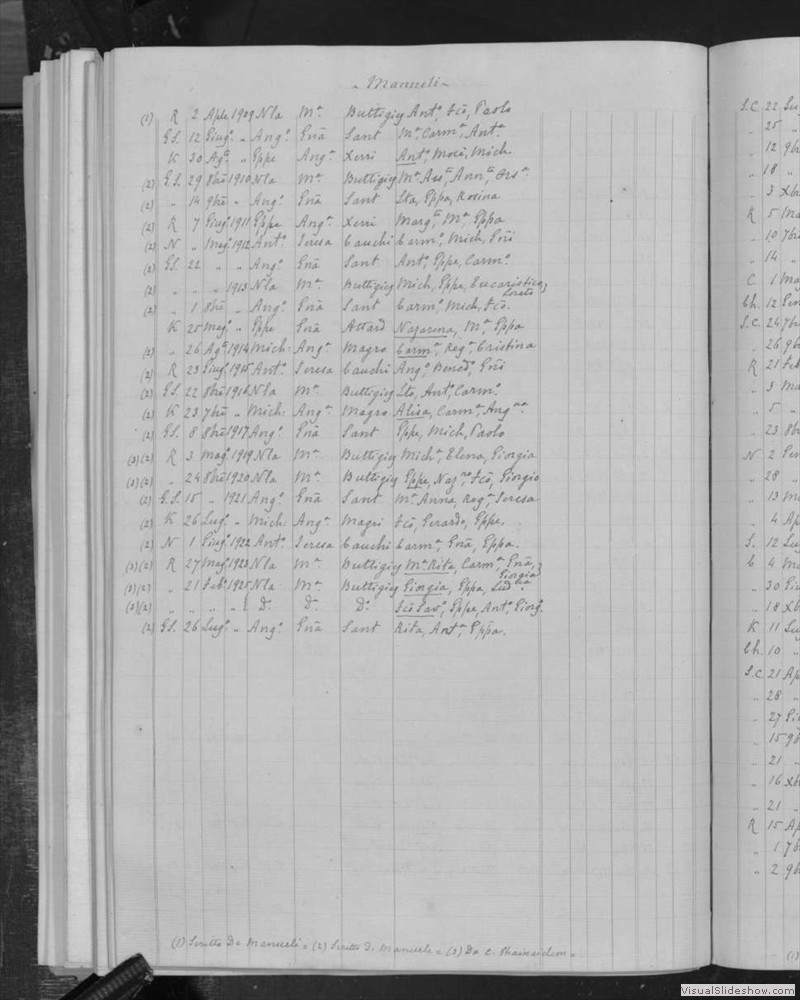 - Manueli -
(1) R 2 Aple 1909 Nla Ma Buttigieg Anto, Fco, Paolo
G.S. 12 Giugo „ Ango Gna Sant Ma Carma, Anta
K 30 Ago „ Gppe Anga Xerri Anto, Mich.
(2) G.S. 29 8bre 1910 Nla Ma Buttigieg Ma Assa, Anna, Orsa
(2) „ 14 9bre „ Ango Gna Sant Sta, Gppa, Rosina
(2) R 7 Giugo 1911 Gppe Anga Xerri Marga, Ma, Gppa
(2) N „ Mago 1912 Anto Teresa Cauchi Carmo, Mich, Gni
(2) G.S. 22 „ „ Ango Gna Sant Anto, Gppe, Carmo
(2) „ „ „ 1913 Nla Ma Buttigieg Mich, Gppe, Eucaristico, Loreto
(2) „ 1 8bre „ Ango Gna Sant Carmo, Mich, Fco.
K 25 Mago „ Gppe Gna Attard Nazarena, Ma, Gppa
(2) „ 26 Ago 1914 Mich: Anga Magro Carma, Rega, Cristina
(2) R 23 Giugo 1915 Anto Teresa Cauchi Ango, Bened, Gni
(2) G.S. 22 8bre 1916 Nla Ma Buttigieg Sto, Anto, Carmo
(2) K 23 7bre „ Mich: Anga Magro Alisa, Carma, Ang
(2) G.S. 8 8bre 1917 Ango Gna Sant Gppe, Mich, Paolo
(3)(2) R 3 Mago 1919 Nla Ma Buttigieg Micha, Elena, Giorgia
(3)(2) „ 24 8bre 1920 Nla Ma Buttigieg Gppe, Nazno, Fco, Giorgio
(2) G.S. 15 „ 1921 Ango Gna Sant Ma Anna, Rega, Teresa
(2) K 26 Lugo „ Mich: Anga Magri Fco, Gerardo, Gppe.
(2) N 1 Giugo 1922 Anto Teresa Cauchi Carma, Gna, Gppa.
(3)(2) R 27 Mago 1923 Nla Ma Buttigieg Ma Rita, Carma, Gna, Giorgia
(3)(2) „ 21 Febo 1925 Nla Ma Buttigieg Giorgia, Gppa, Luda
(3)(2) „ „ „ „ Do Do Do Fco Savo, Gppe, Anto, Giorgo
(2) G.S. 26 Lugo „ Ango Gna Sant Rita, Anta, Gppa.
(1) Scritto De Manueli = (2) Scritto Di Manuele = (3) Da
S.C. 22
„ 25 „
„ 12 9b
„ 18 „
„ 3 Xb
R 5 Ma
„ 10 7b
„ 14 „
C 1 Mag
Ch. 12
S.C. 24 7b
„ 26 9b
R 21 Feb
„ 3 Ma
„ 5 „
„ 23 8b
N 2
„ 28 „
„ 13 Ma
„ 4 Ap
S. 12 Lu
C 4 Ma
„ 30 Giu
„ 18 Xb
K 11 Lu
Ch. 10 „
S.C. 21 Ap
„ 28 „
„ 27 Gi
„ 15 9b
„ 21 „
„ 16 Xb
„ 21 „
R 15 Ap
„ 1 7b
„ 2 9b
(1)
VisualSlideshow.com